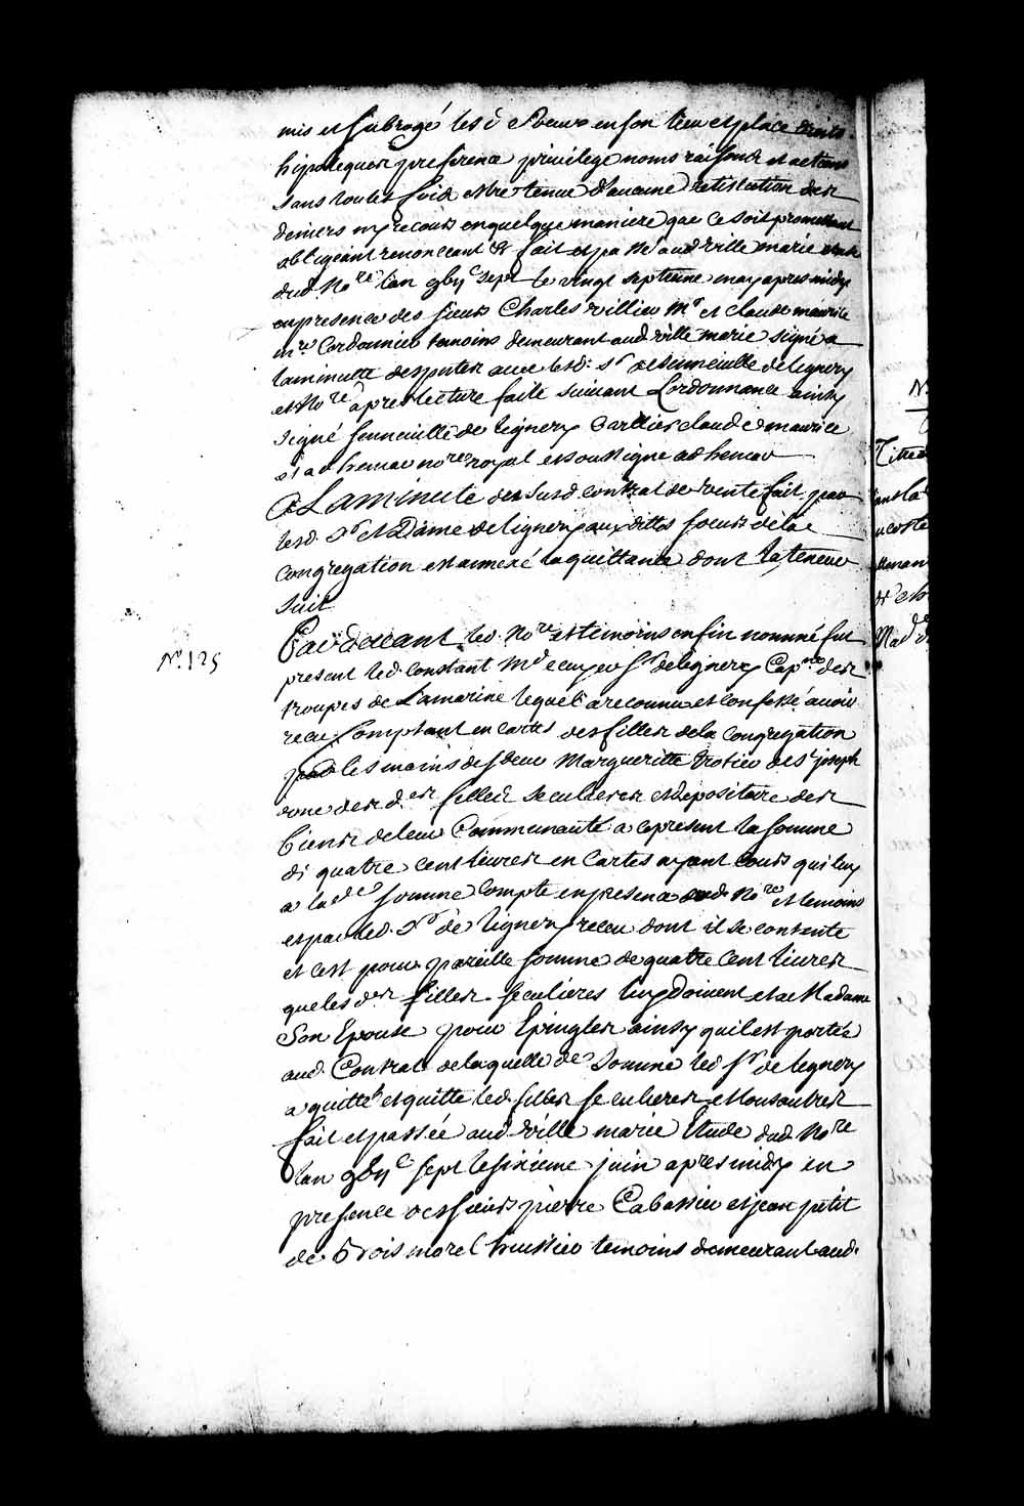 mis et subrogé les d Soeurs en son lieu et place droits
hipoteques preference privilege noms raisons et actions
sans toutes fois estre tenue d'aucune restitution des
deniers ny recours en quelque maniere que ce soit promettant
obligeant renonceant & fait et passé aud ville marie etude
dud. No.re l'an gbijc sept le vingt septieme may apres midy
en presence des sieurs Charles villien Mr et claude maurice
m.re Cordonnier temoins demeurant aud ville marie signé a
la minutte des presentes avec lesd. Sr de senneville de lignery
et No.re apres lecture faite suivant l'ordonnance ainsy
signé senneville de lignery claude maurice
et adhemar no.re royal et soussigne adhemar
A La minute du susd. contrat de vente fait par
lesd. Sr et Dame de lignery aux dittes soeurs de la
Congregation est annexé la quittance dont la teneur
suit
N.o 125
Pardevant led. No.re et temoins en fin nommé fut
present led. Constant Md ecuyer Sr de lignery Cap.ne des
troupes de La marine lequel a reconnu et confessé avoir
receu Comptant en cartes des filles de la Congregation
par les mains de soeur Margueritte trotier de St joseph
l'une des d.es filles seculieres et depositaire des
biens de leur Communauté a ce present la somme
de quatre cent livres en Cartes ayant cours qui luy
a lad.e somme Compté en presence dud. No.re et temoins
et par led. Sr de lignery receu dont il se contente
et c'est pour pareille somme de quatre Cent livres
que les d.es filles seculieres luy doivent et a Madame
Son Epouse pour Epingles ainsy qu'il est portée
aud. Contrat de laquelle de somme led Sr de lignery
a quitté et quitte led. filles seculieres et tous autres
fait et passée aud ville marie Etude dud No.re
l'an gbijc sept le sixieme juin apres midy en
presence des sieurs pierre Cabassier et jean petit
de Boismorel huissier temoins demeurant aud.